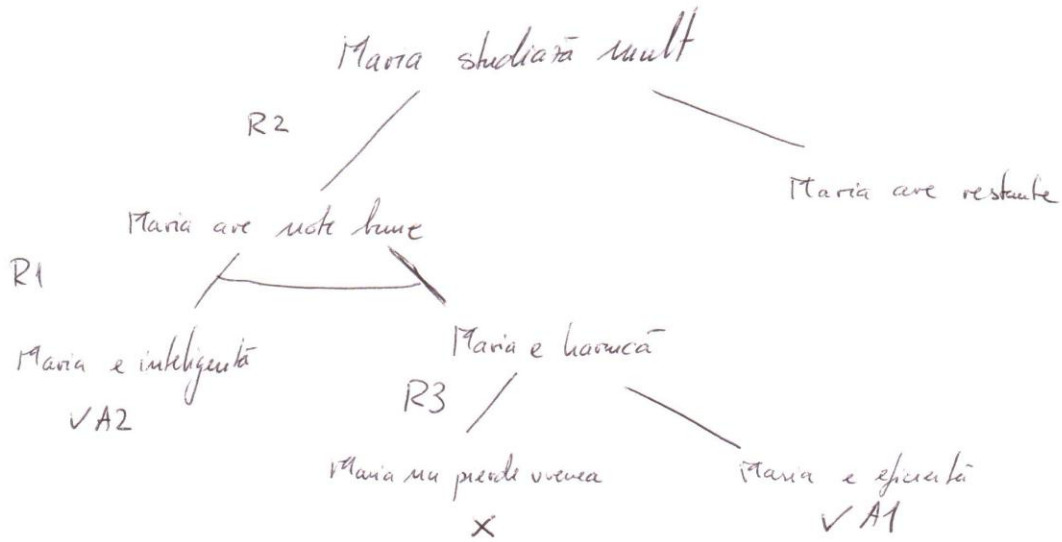 Maria studiază mult
R2
Maria are restante
Maria are note bune
R1
Maria e inteligentă
Maria e harnică
✓ A2
R3
Maria nu pierde vremea
Maria e eficientă
X
✓ A1